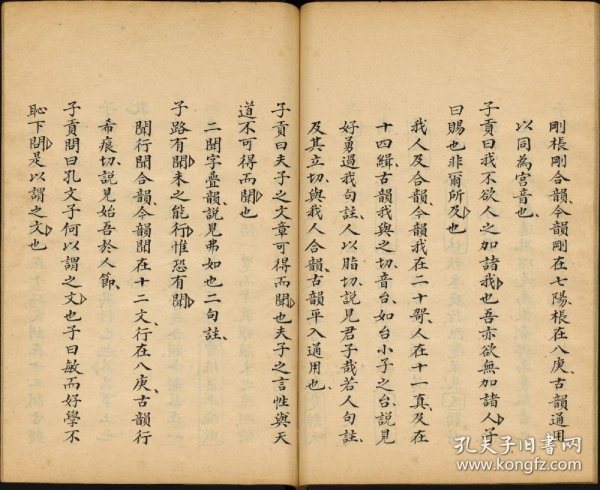 剛棖剛合韻今韻剛在七陽棖在八庚古韻通用
以同為宫音也
子貢曰我不欲人之加諸我也吾亦欲無加諸人子
曰賜也非爾所及也
我人及合韻今韻我在二十哿人在十一真及在
十四緝古韻我與之切音台如台小子之台說見
好勇過我句註人以脂切說見君子哉若人句註
及其立切與我人合韻古韻平入通用也
子貢曰夫子之文章可得而聞也夫子之言性與天
道不可得而聞也
二聞字疊韻說見弗如也二句註
子路有聞未之能行惟恐有聞
聞行聞合韻今韻聞在十二文行在八庚古韻行
希痕切說見始吾於人節
子貢問曰孔文子何以謂之文也子曰敏而好學不
恥下問是以謂之文也
孔夫子旧书网
www.kongfz.com